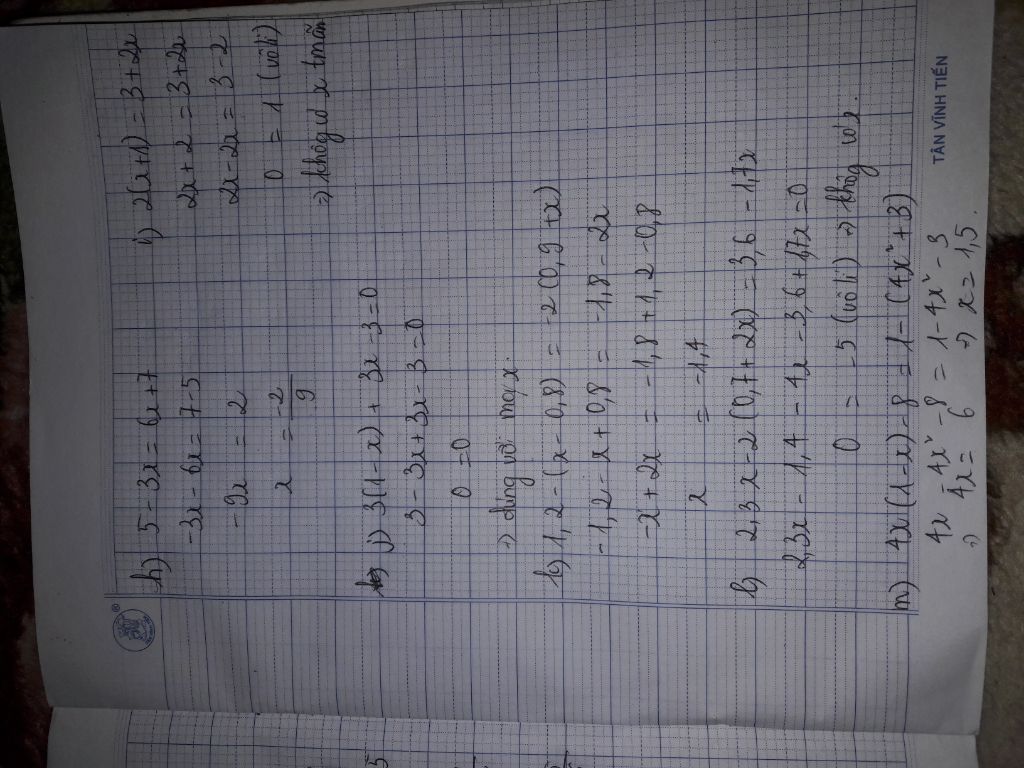 h) 5 - 3x = 6x + 7
-3x - 6x = 7 - 5
-9x = 2
x = -2/9
i) 2(x+1) = 3 + 2x
2x + 2 = 3 + 2x
2x - 2x = 3 - 2
0 = 1 (vô lí)
=> không có x tmãn
j) 3(1 - x) + 3x - 3 = 0
3 - 3x + 3x - 3 = 0
0 = 0
=> đúng với mọi x.
k) 1,2 - (x - 0,8) = -2(0,9 + x)
-1,2 - x + 0,8 = -1,8 - 2x
-x + 2x = -1,8 + 1,2 - 0,8
x = -1,4
l) 2,3x - 2(0,7 + 2x) = 3,6 - 1,7x
2,3x - 1,4 - 4x - 3,6 + 1,7x = 0
0 = -5 (vô lí) => không với x.
m) 4x(1 - x) - 8 = 1 - (4x² + 3)
4x - 4x² - 8 = 1 - 4x² - 3
=> 4x = 6 => x = 1,5.
TÂN VĨNH TIẾN